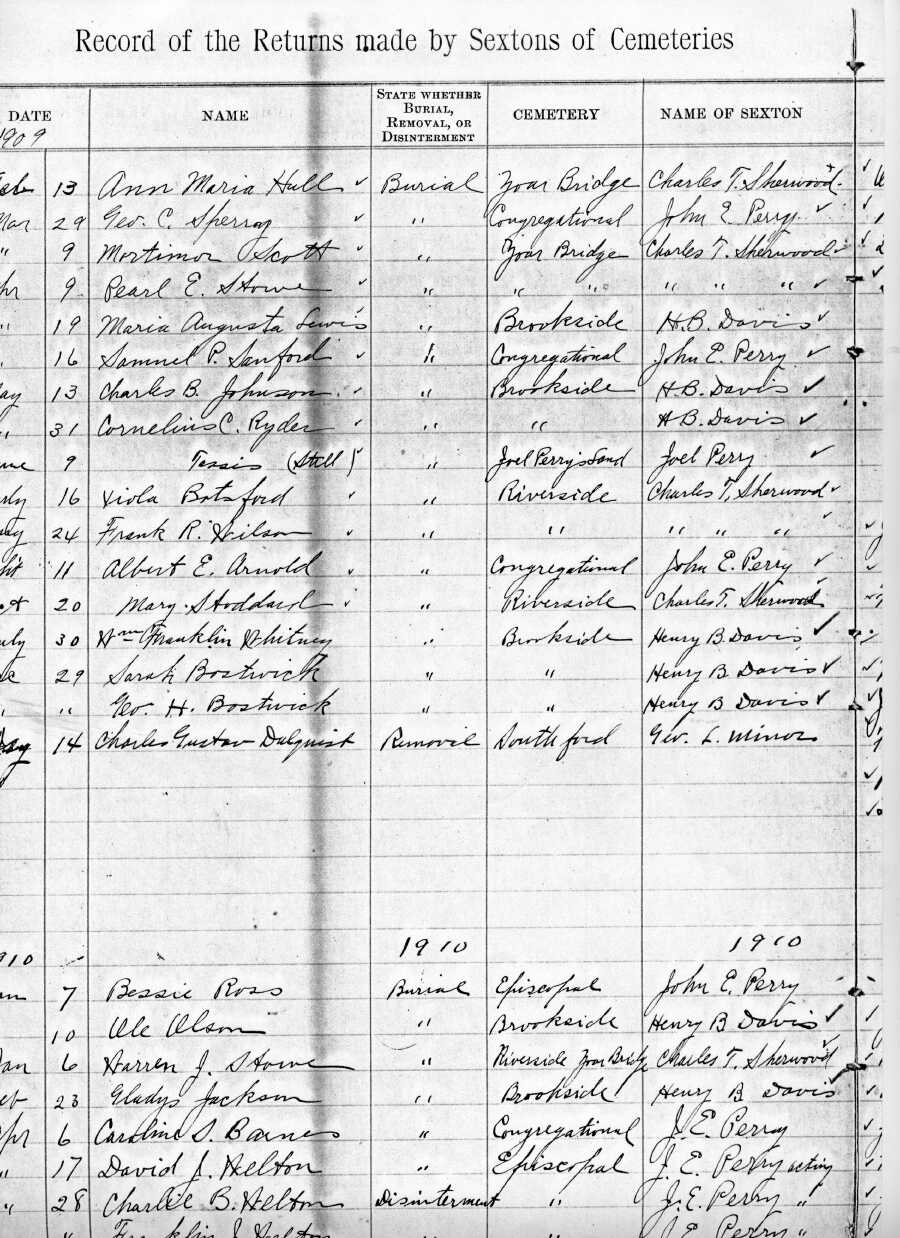 Record of the Returns made by Sextons of Cemeteries
DATE NAME STATE WHETHER BURIAL, REMOVAL, OR DISINTERMENT CEMETERY NAME OF SEXTON
1909
Feb 13 Ann Maria Hull Burial Zoar Bridge Charles T. Sherwood.
Mar 29 Geo. C. Sperry " Congregational John E. Perry.
" 9 Mortimor Scott " Zoar Bridge Charles T. Sherwood
pr 9 Pearl E. Stowe " " " " " "
" 19 Maria Augusta Lewis " Brookside H.B. Davis
16 Samuel P. Sanford " Congregational John E. Perry
ay 13 Charles B. Johnson. " Brookside H.B. Davis
" 31 Cornelius C. Ryder " " H.B. Davis
ne 9 (Still) " Joel Perry's Land Joel Perry
uly 16 Viola Botsford " Riverside Charles T. Sherwood
ug 24 Frank R. Wilson " " " " "
pt 11 Albert E. Arnold " Congregational John E. Perry
ct 20 Mary Stoddard " Riverside Charles T. Sherwood
uly 30 Wm Franklin Whitney " Brookside Henry B. Davis
ec 29 Sarah Bostwick " " Henry B Davis
" " Geo. H. Bostwick " " Henry B Davis
14 Charles Gustav Dalquist Removil Southford Geo. L. Minor
1910 1910
910
an 7 Bessie Ross Burial Episcopal John E. Perry
10 Ole Olson " Brookside Henry B Davis
Jan 6 Warren J. Stowe " Riverside Zoar Bridge Charles T. Sherwood
eb 23 Gladys Jackson " Brookside Henry B Davis
pr 6 Caroline S. Barnes " Congregational J. E. Perry
" 17 David J. Welton " Episcopal J. E. Perry acting
" 28 Charlie B. Welton Disinterment " J. E. Perry "
" Franklin J. Welton " " J. E. Perry "